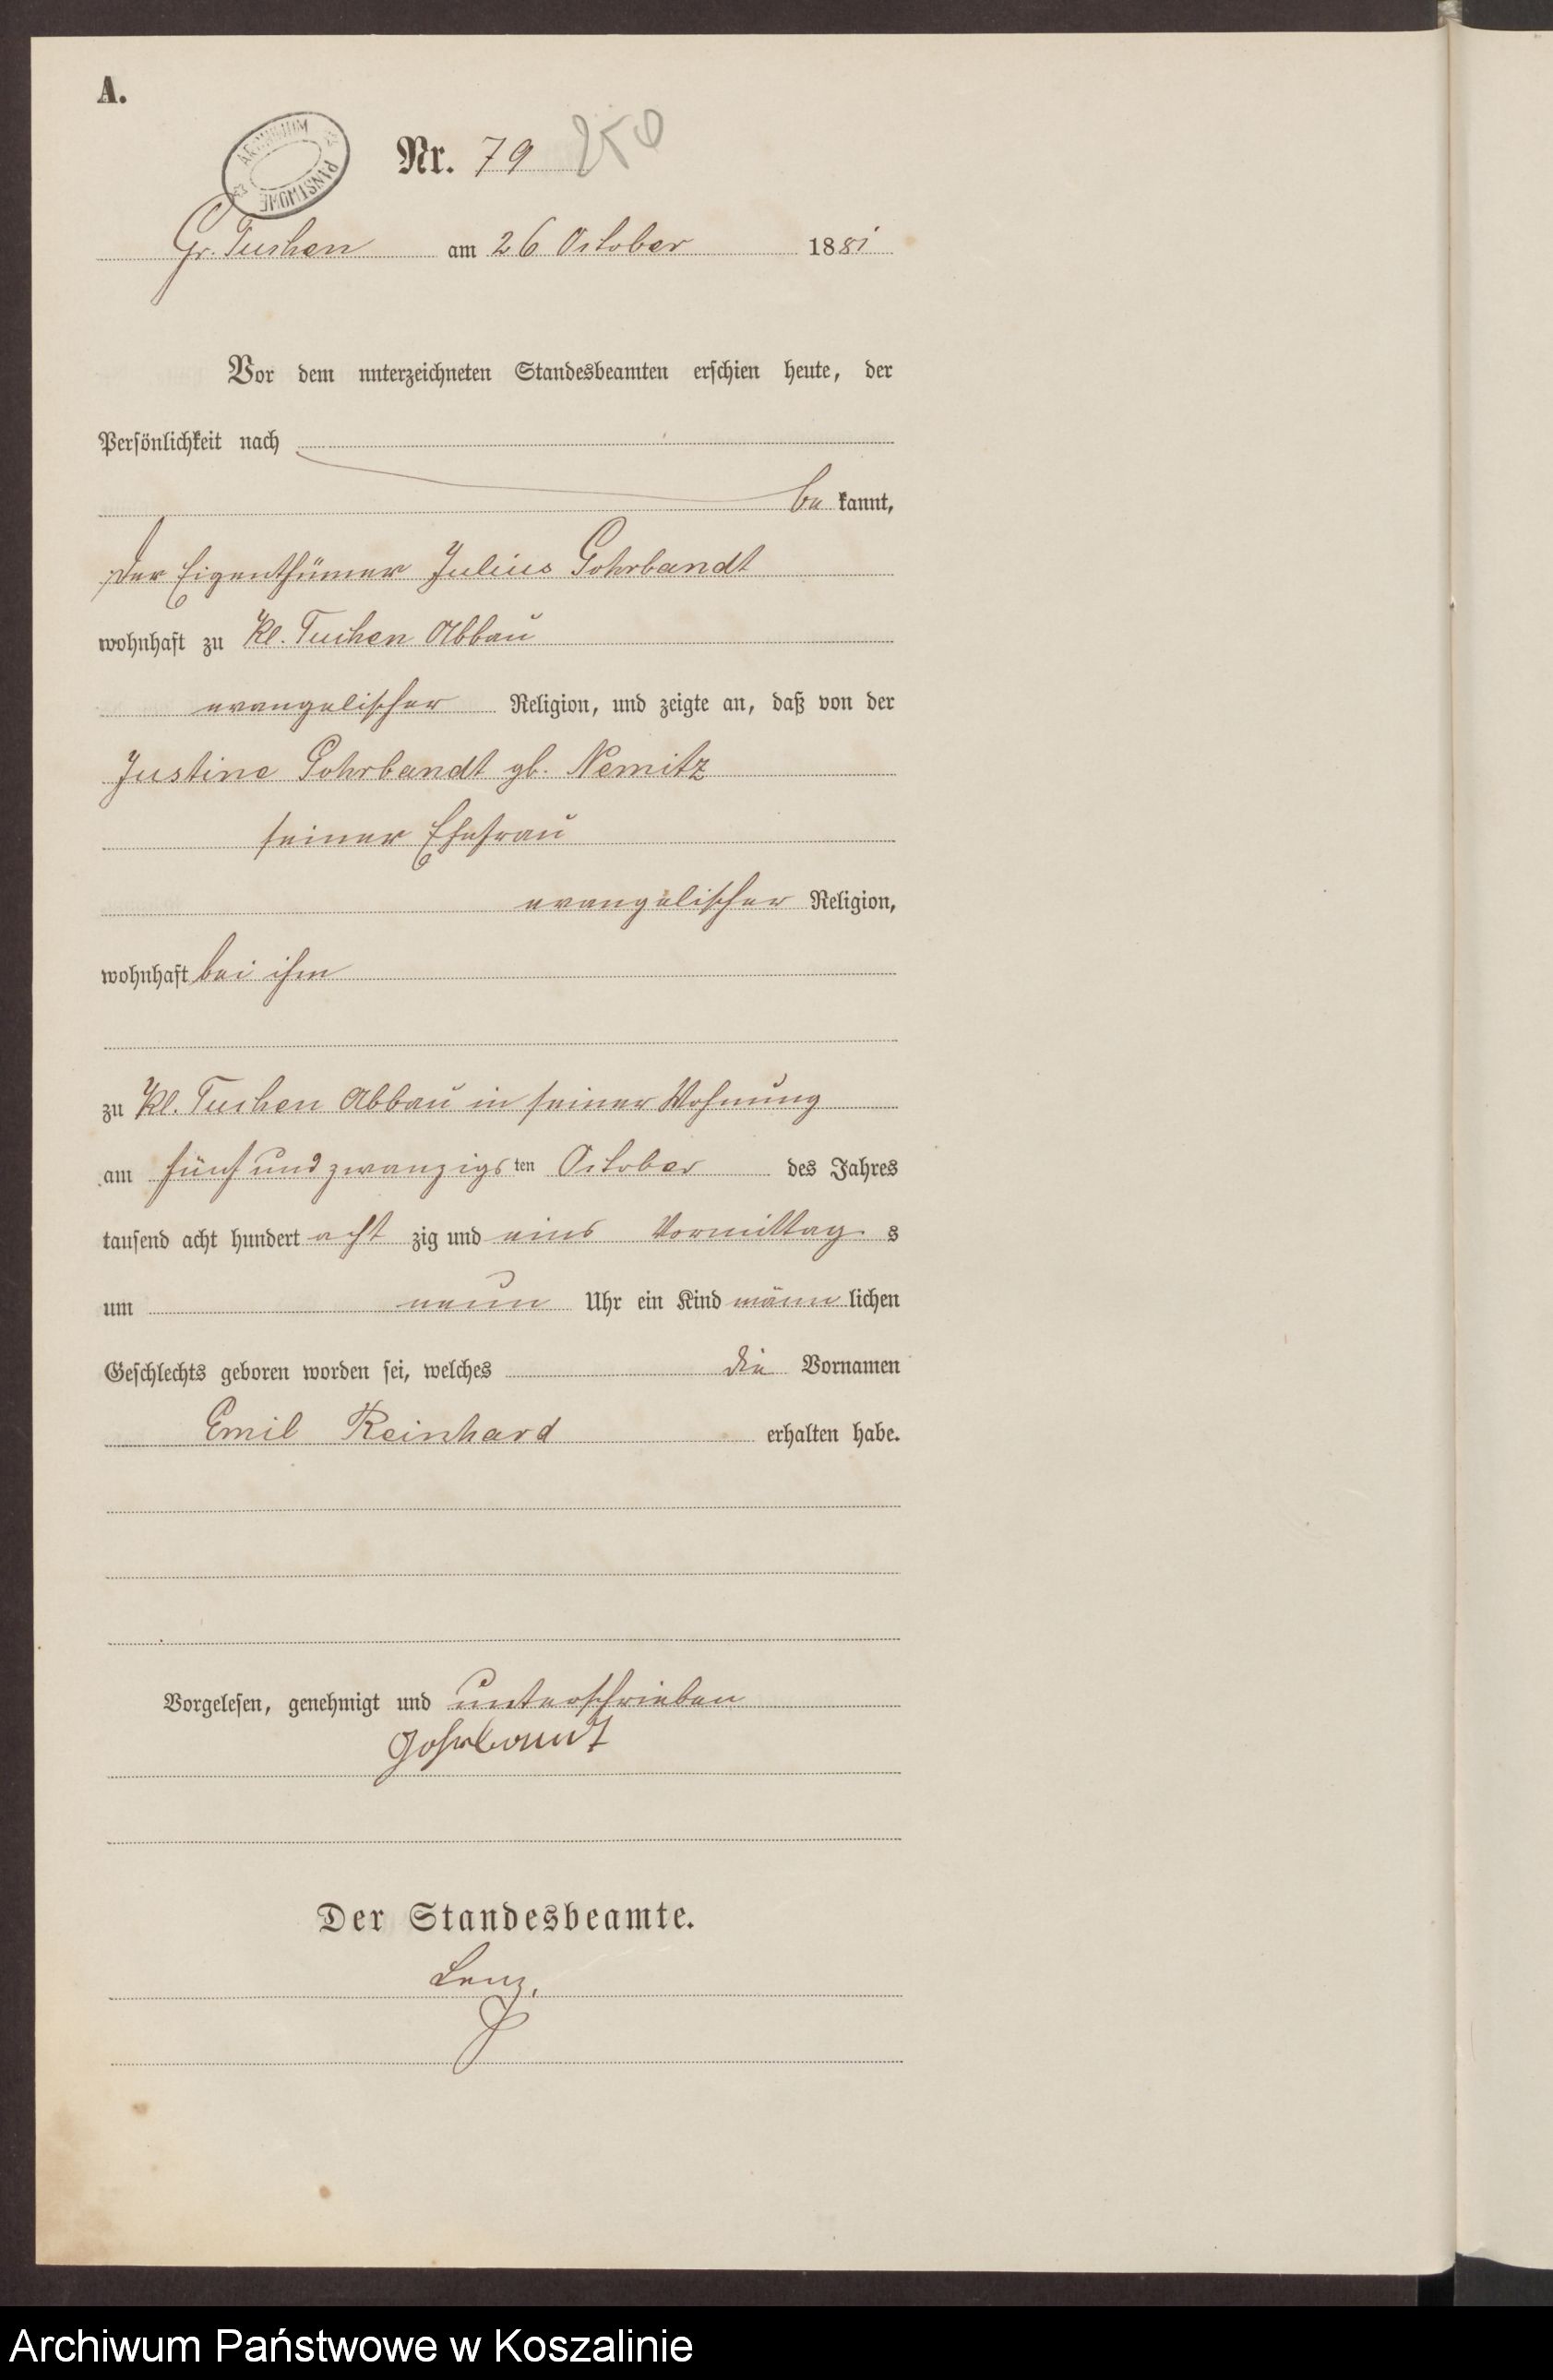 A.
ARCHIWUM PAŃSTWOWE
Nr. 79 250
Gr. Tuchen am 26 October 1881
Vor dem unterzeichneten Standesbeamten erschien heute, der
Persönlichkeit nach
be kannt,
der Eigenthümer Julius Gohrbandt
wohnhaft zu Kl. Tuchen Abbau
evangelischer Religion, und zeigte an, daß von der
Justine Gohrbandt gb. Nemitz
seiner Ehefrau
evangelischer Religion,
wohnhaft bei ihm
zu Kl. Tuchen Abbau in seiner Wohnung
am fünf und zwanzigsten October des Jahres
tausend acht hundert acht zig und eins Vormittags
um neun Uhr ein Kind männlichen
Geschlechts geboren worden sei, welches die Vornamen
Emil Reinhard erhalten habe.
Vorgelesen, genehmigt und unterschrieben
Gohrbandt
Der Standesbeamte.
Lenz.
Archiwum Państwowe w Koszalinie